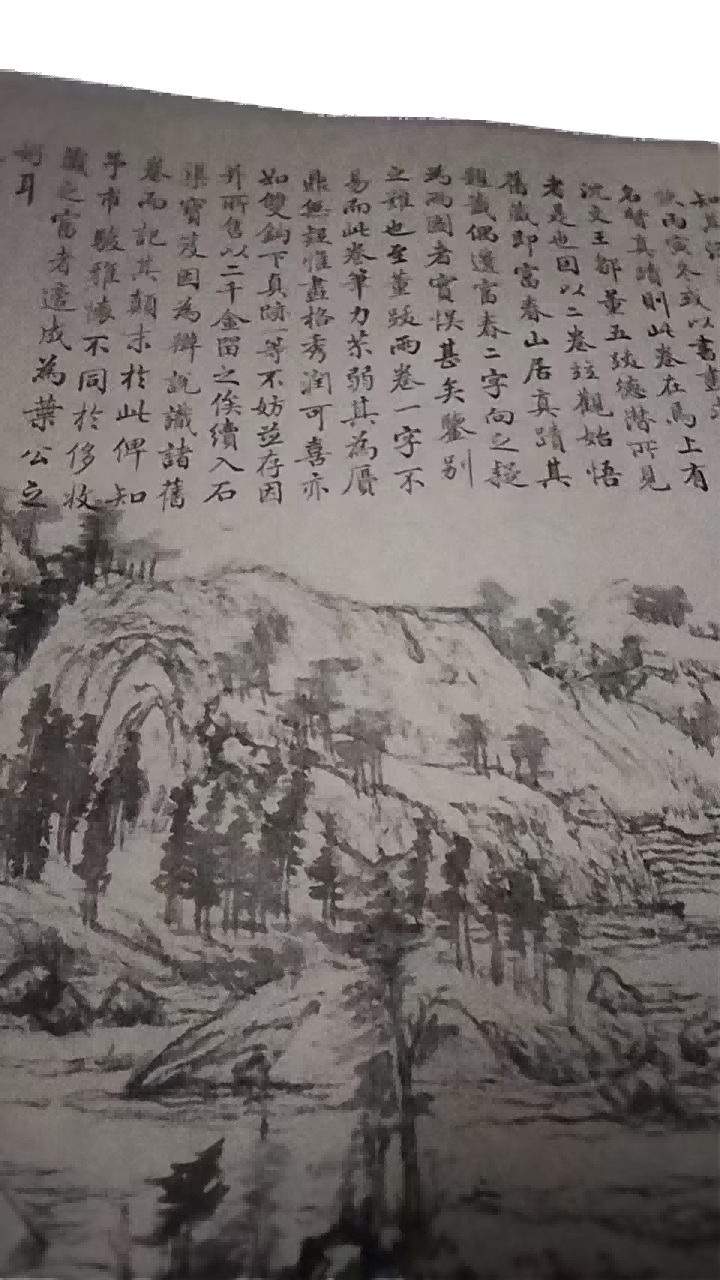 名賢真蹟則此卷在焉上有
沈文王鄒董五跋德潛所見
者是也因以二卷並觀始悟
舊藏即富春山居真蹟其
題籤偶遺富春二字向之疑
為兩圖者實誤甚矣鑒別
之難也至董跋兩卷一字不
易而此卷筆力苶弱其為贋
鼎無疑惟畫格秀潤可喜亦
如雙鈎下真跡一等不妨並存因
并所售以二千金留之俟續入石
渠寶笈因為辯說識諸舊
卷而記其顛末於此俾知
予市駿雅懷不同於侈收
藏之富者適成為葉公之
好耳